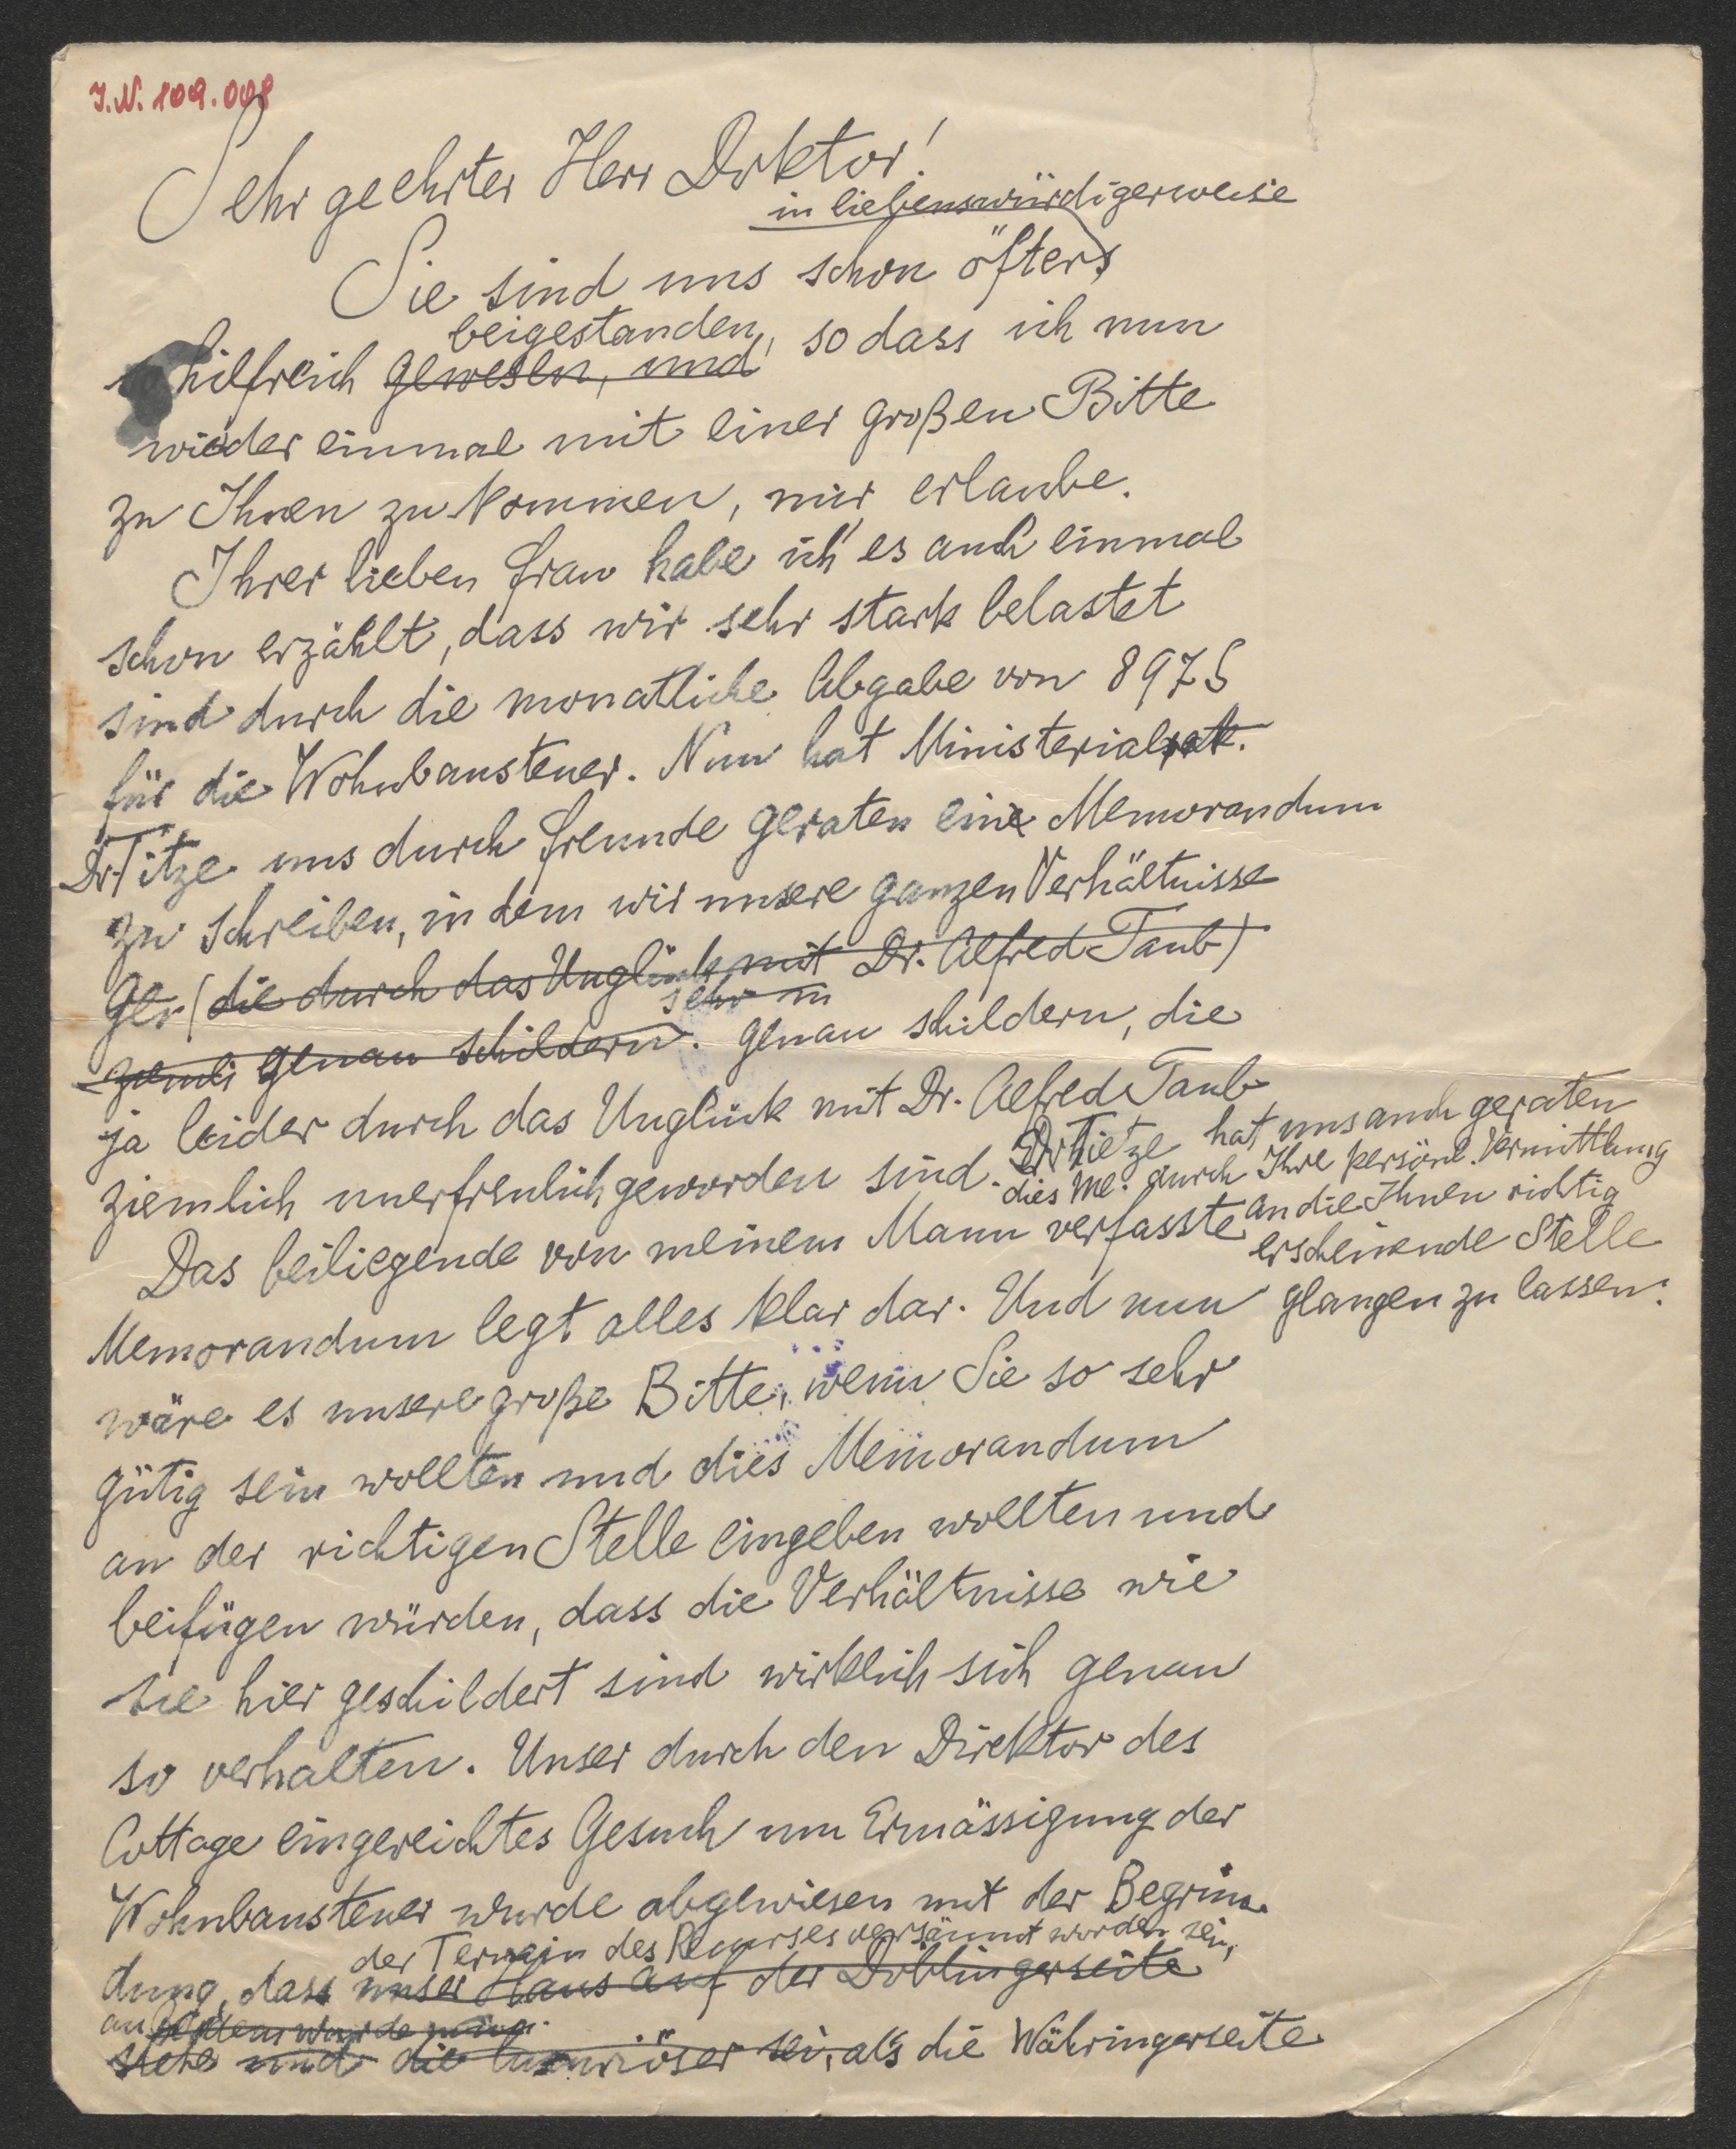 I.N. 109.008
Sehr geehrter Herr Doktor!
in liebenswürdigerweise
Sie sind uns schon öfters
beigestanden,
hilfreich gewesen, und so dass ich nun
wieder einmal mit einer großen Bitte
zu Ihnen zu kommen, mir erlaube.
Ihrer lieben Frau habe ich es auch einmal
schon erzählt, dass wir sehr stark belastet
sind durch die monatliche Abgabe von 897 S
für die Wohnbausteuer. Nun hat Ministerialrat.
Dr. Titze uns durch Freunde geraten ein Memorandum
zu schreiben, in dem wir unsere ganzen Verhältnisse
(die durch das Unglück mit Dr. Alfred Taub)
sehr
genau schildern. genau schildern, die
ja leider durch das Unglück mit Dr. Alfred Taub
ziemlich unerfreulich geworden sind.
Dr Tietze hat uns auch geraten
dies Me. durch Ihre persönl. Vermittlung
an die Ihnen richtig
erscheinende Stelle
glangen zu lassen.
Das beiliegende von meinem Mann verfasste
Memorandum legt alles klar dar. Und nun
wäre es unsere große Bitte, wenn Sie so sehr
gütig sein wollten und dies Memorandum
an der richtigen Stelle eingeben wollten und
beifügen würden, dass die Verhältnisse wie
sie hier geschildert sind wirklich sich genau
so verhalten. Unser durch den Direktor des
Cottage eingereichtes Gesuch um Ermässigung der
Wohnbausteuer wurde abgewiesen mit der Begrün-
der Termin des Recurses versäumt worden sei,
dung, dass unser Haus auf der Döblingerseite
wurde
stehe und die luxuriöser sei, als die Währingerseite